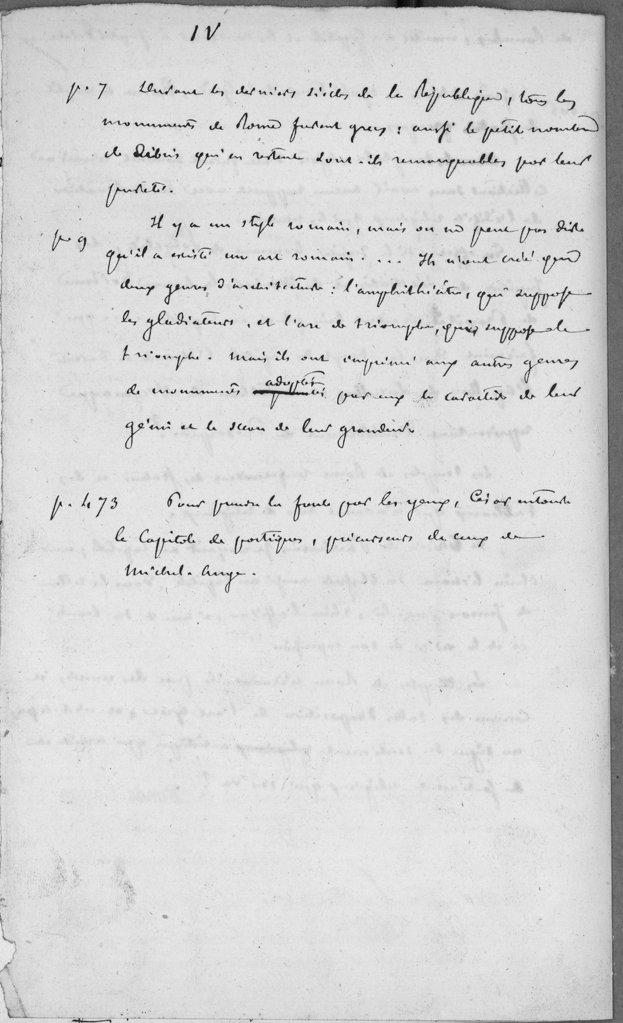 IV
p. 7 Durant les derniers siècles de la République, tous les
monuments de Rome furent grecs ; aussi le petit nombre
de débris qui en restent sont-ils remarquables par leur
pureté.
p. 9 Il y a un style romain, mais on ne peut pas dire
qu'il a existé un art romain. ... Ils n'ont créé que
deux genres d'architecture : l'amphithéâtre, qui suppose
les gladiateurs, et l'arc de triomphe, qui suppose le
triomphe. Mais ils ont imprimé aux autres genres
de monuments adoptés par eux le caractère de leur
génie et le sceau de leur grandeur.
p. 473 Pour prendre la foule par les yeux, César entoure
le Capitole de portiques, précurseurs de ceux de
Michel-Ange.